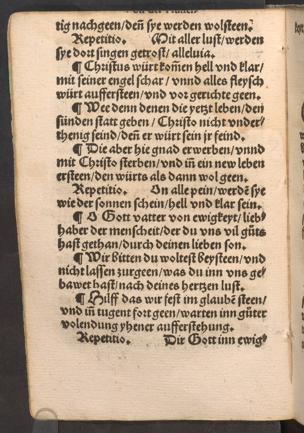 tig nachgeen/deñ sye werden wolsteen.
Repetitio. Mit aller lust/werden
sye dort singen getrost/alleluia.
¶ Christus würt kom̃en hell vnd klar/
mit seiner engel schar / vnnd alles fleysch
würt aufferſteen/vnd vor gerichte geen.
¶ Wee denn denen die yetzt leben/den
sünden statt geben / Christo nicht vnder/
thenig seind/deñ er würt sein jr feind.
¶ Die aber hie gnad erwerben/vnnd
mit Christo sterben/vnd iñ ein new leben
ersteen/den würts als dann wol geen.
Repetitio. On alle pein/werdẽ sye
wie der sonnen schein/hell vnd klar sein.
¶ O Gott vatter von ewigkeyt/lieb/
haber der menscheit/der du vns vil gůts
hast gethan/durch deinen lieben son.
¶ Wir bitten du woltest beysteen/vnd
nicht lassen zurgeen/was du inn vns ge/
bawet hast/nach deines hertzen lust.
¶ Hilff das wir fest im glaubẽ steen/
vnd iñ tugent fort geen/warten inn gůter
volendung yhener aufferstehung.
Repetitio. Dir Gott inn ewig/